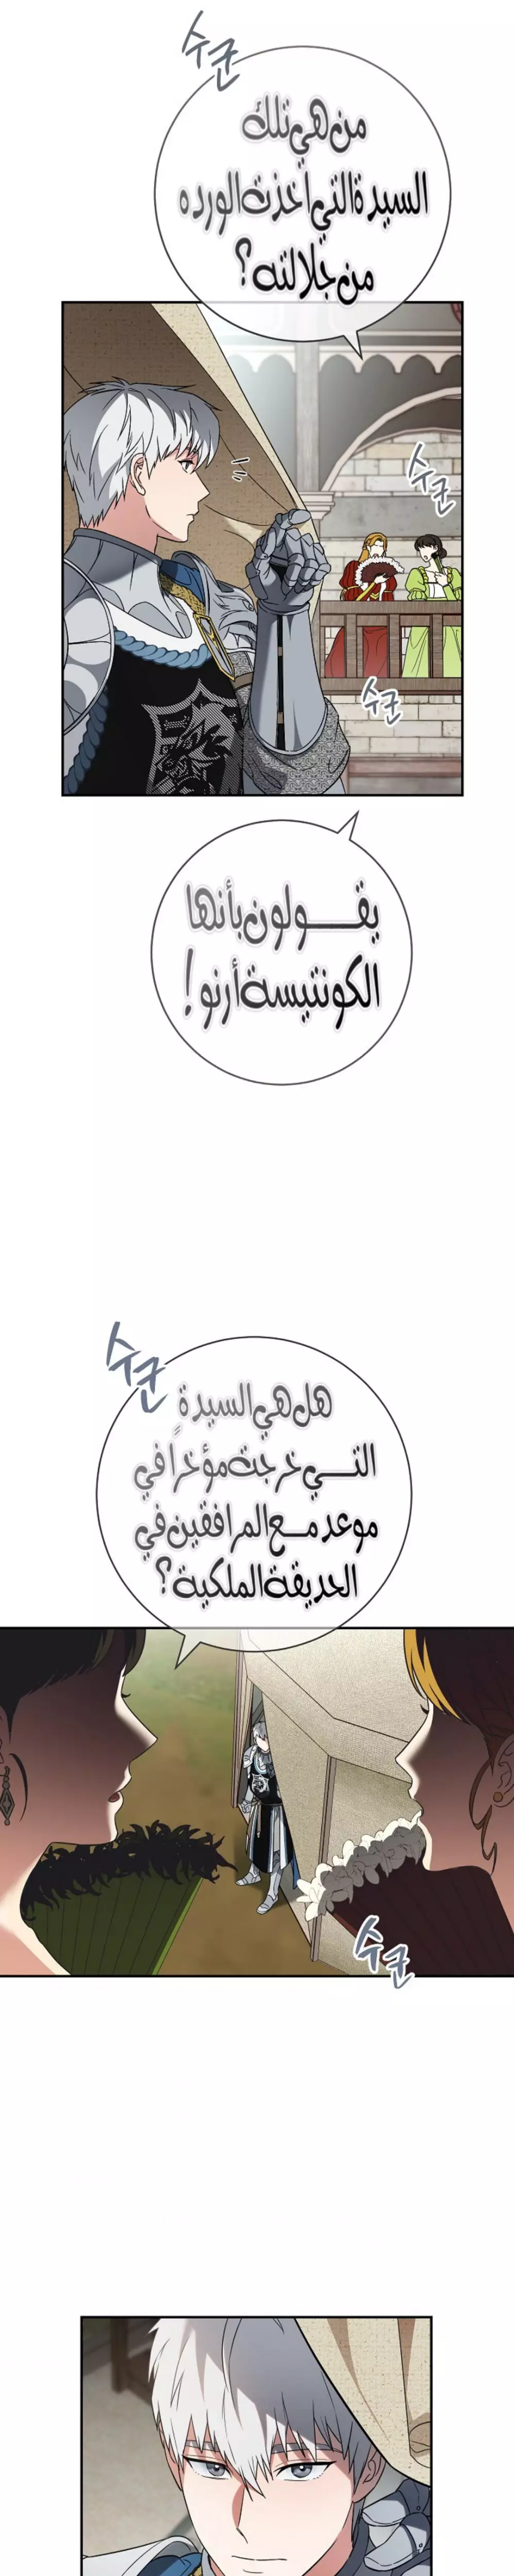 수군
من هي تلك
السيدة التي اخذت الورده
من جلالته؟
수군
수군
يقـــولون بأنها
الكونتيسة أرنو!
수군
هل هي السيدة
التـــي خرجت مؤخراً في
موعد مــع المرافقين في
الحديقة الملكية؟
수군